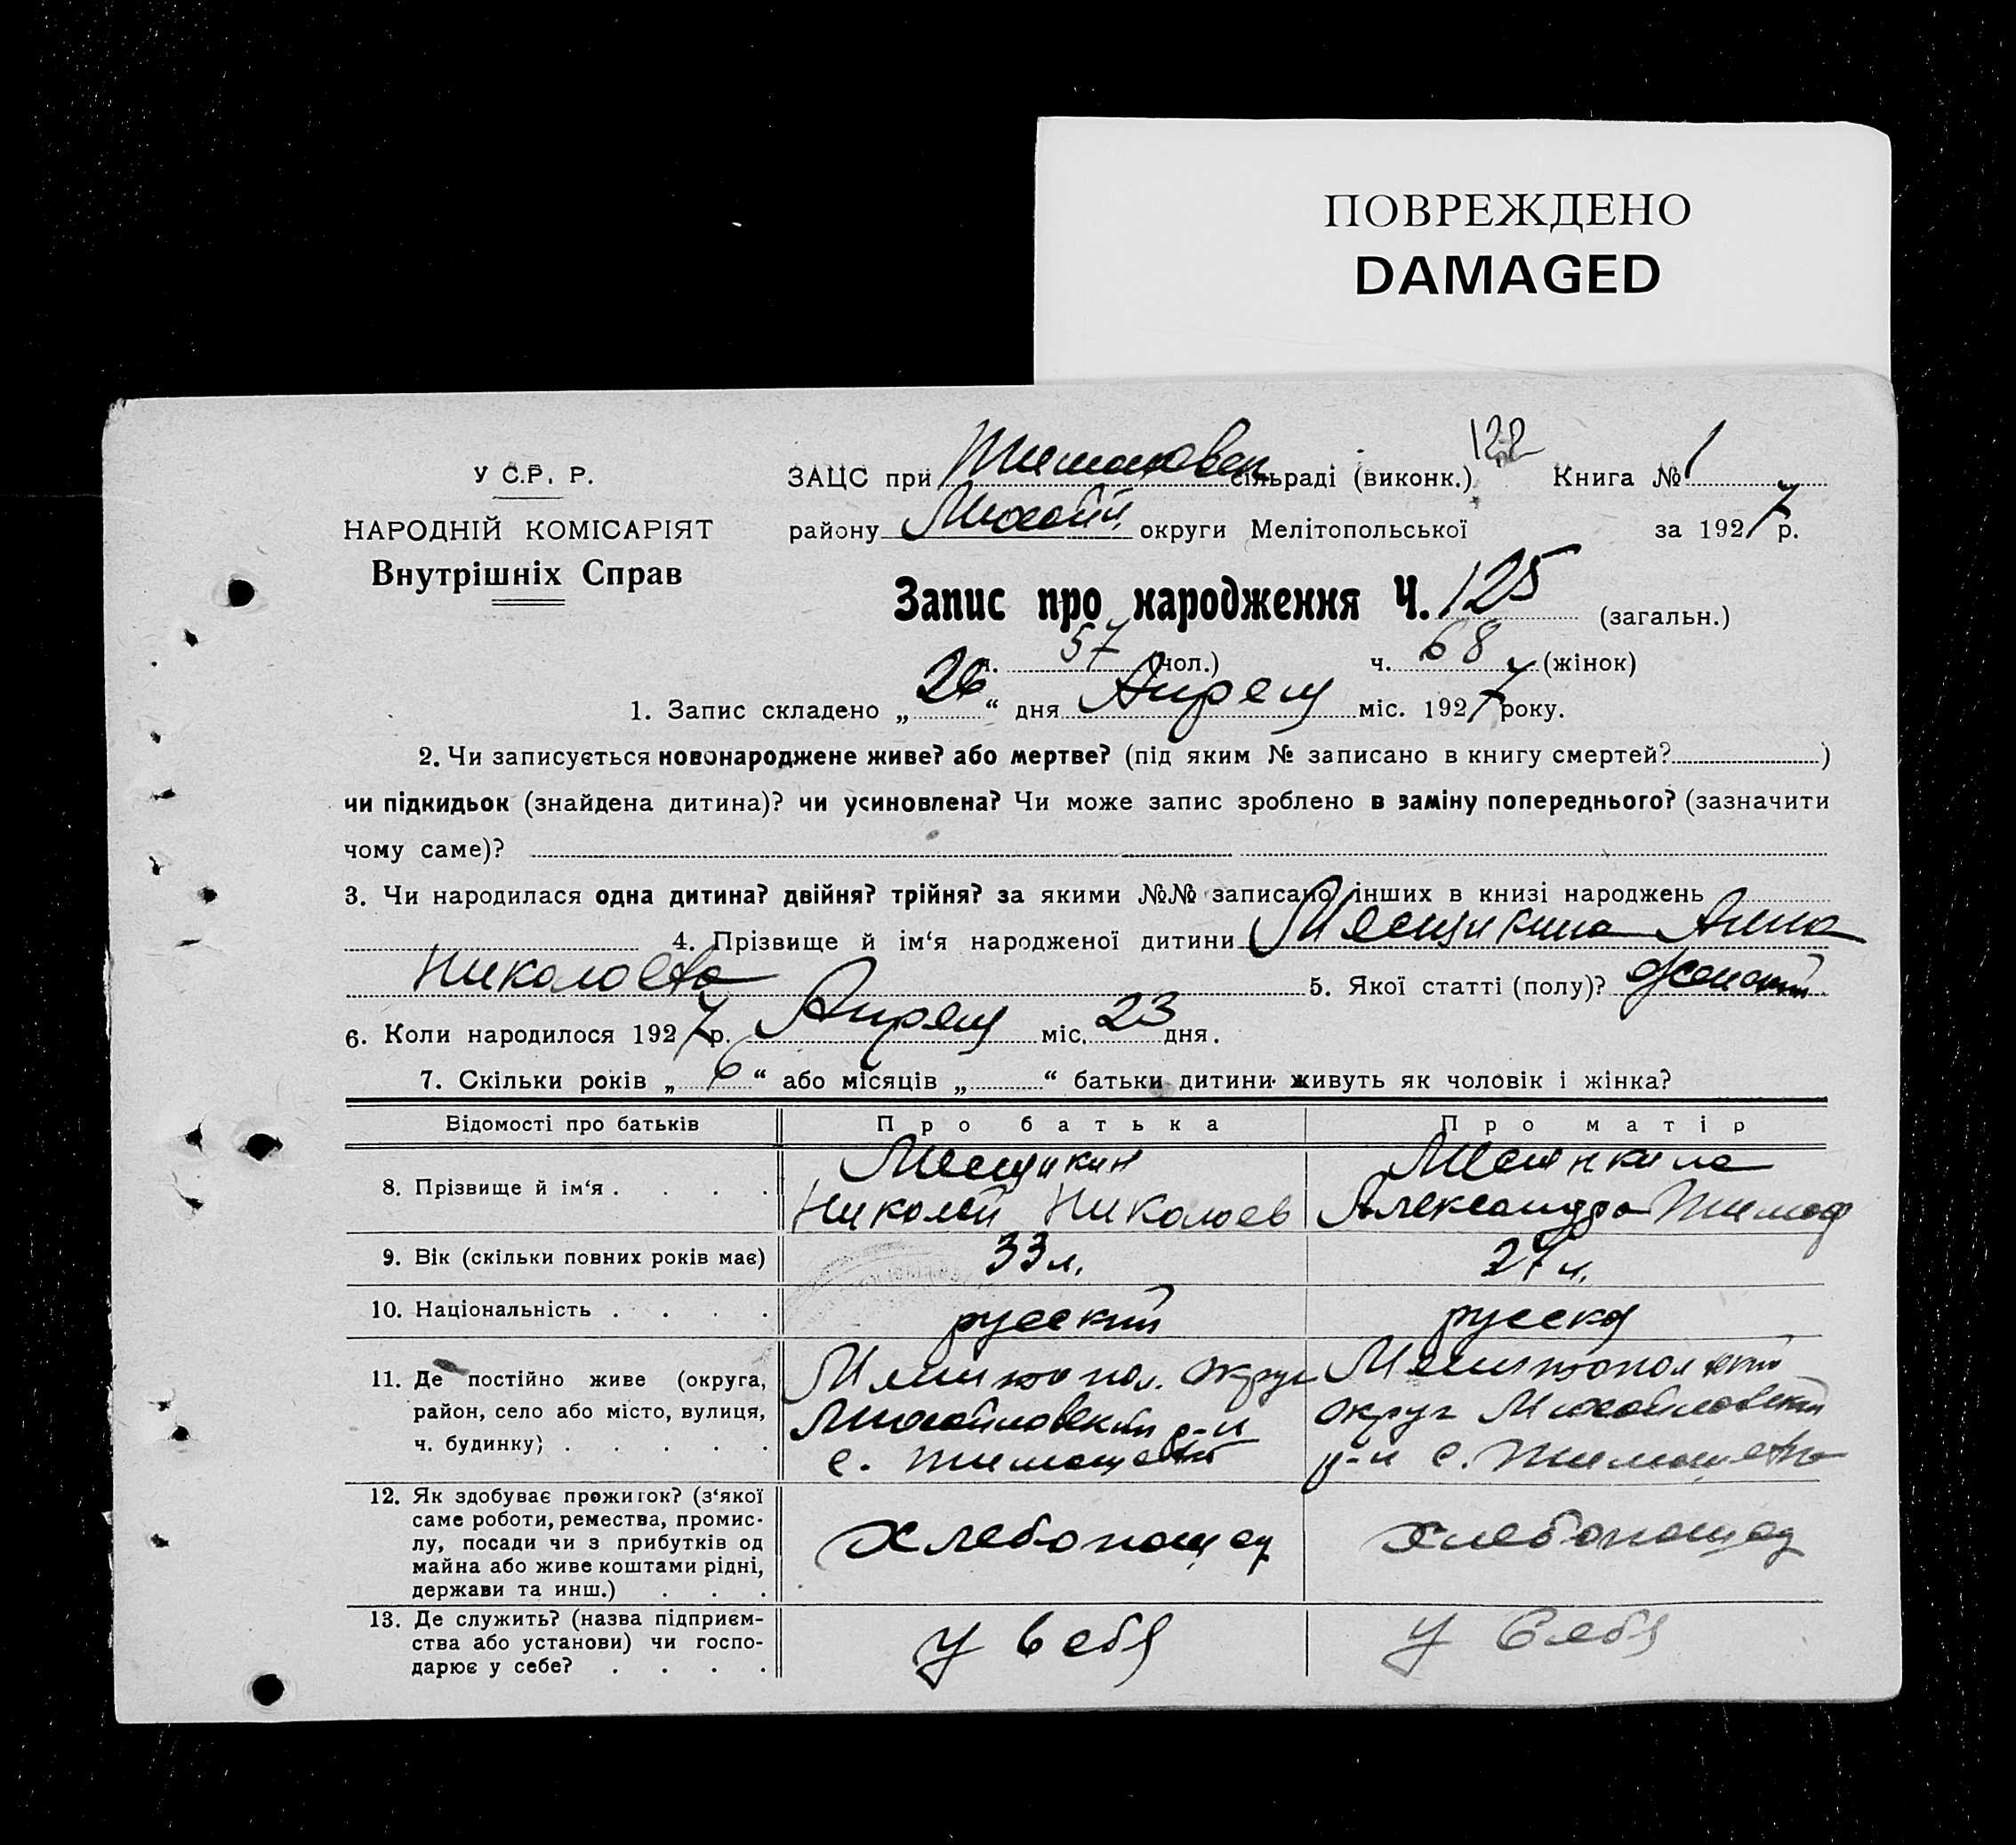 ПОВРЕЖДЕНО
DAMAGED
122
У С.Р. Р.
НАРОДНІЙ КОМІСАРІЯТ
Внутрішніх Справ
ЗАЦС при Тимошовск сільраді (виконк.) Книга № 1
району Михайл. округи Мелітопольської за 1927 р.
Запис про народження Ч. 125 (загальн.)
ч. 57 (чол.) ч. 68 (жінок)
1. Запис складено „26“ дня Апреля міс. 1927 року.
2. Чи записується новонароджене живе? або мертве? (під яким № записано в книгу смертей? )
чи підкидьок (знайдена дитина)? чи усиновлена? Чи може запис зроблено в заміну попереднього? (зазначити
чому саме)?
3. Чи народилася одна дитина? двійня? трійня? за якими №№ записано інших в книзі народжень
4. Прізвище й ім‘я народженої дитини Мещикина Анна
Николаевна 5. Якої статті (полу)? женский
6. Коли народилося 1927 р. Апреля міс. 23 дня.
7. Скільки років „6“ або місяців „ “ батьки дитини живуть як чоловік і жінка?
Відомості про батьків Про батька Про матір
8. Прізвище й ім‘я . . . . Мещикин Николай Николаев Мещикина Александра Тимоф
9. Вік (скільки повних років має) 33 л. 27 л.
10. Національність . . . . русский русска
11. Де постійно живе (округа, Мелитопол. округ Мелитопольский
район, село або місто, вулиця, Михайловский р-н округ Михайловский
ч. будинку) . . . . . с. Тимошевка р-н с. Тимошевка
12. Як здобуває прожиток? (з‘якої
саме роботи, ремества, промис-
лу, посади чи з прибутків од хлебопашец хлебопашец
майна або живе коштами рідні,
держави та инш.) . . .
13. Де служить? (назва підприєм-
ства або установи) чи госпо- у себя у себя
дарює у себе? . . . .